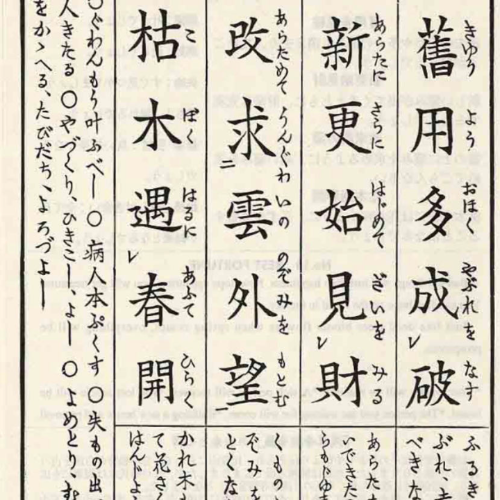 きゆう よう おほく やぶれを なす
舊用多成レ破
あらたに さらに はじめて ざいを み
新更始見レ財
あらためて うんぐわいの のぞみを もとむ
改求二雲外望一
こ ぼく はるに あふて ひら
枯木遇レ春開
ふるき
べきな
あらた
いできた
もの
とくな
かれ木
て花さく
はんじよ
○ぐわんもう叶ふべし ○病人本ぷくす ○失もの出
人きたる ○やづくり、ひきこし、よし ○めとりむ
をかゝへる、たびだち、よろづよし